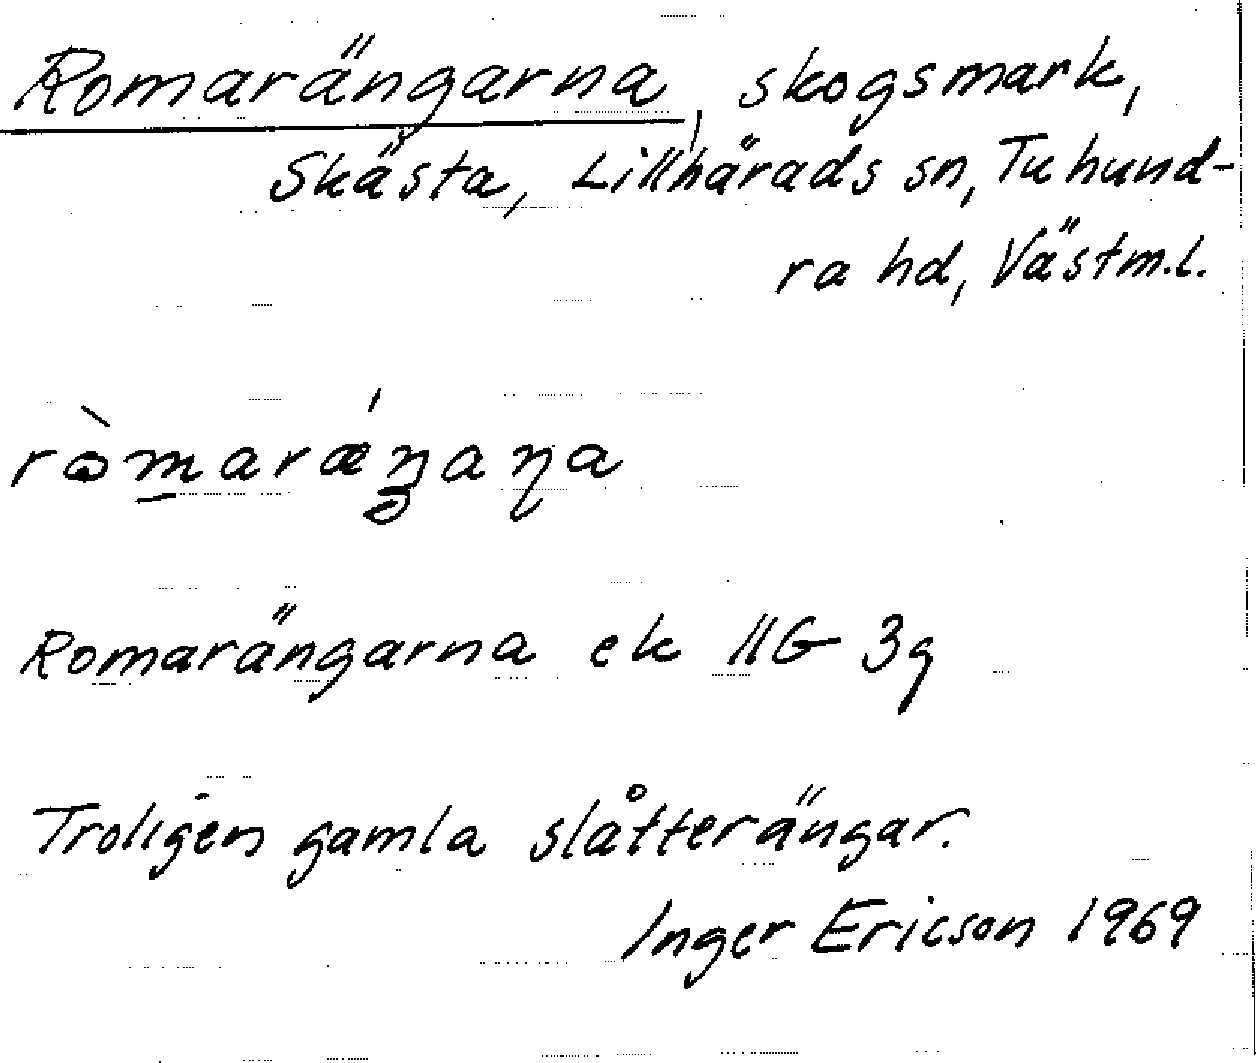 Romarängarna, skogsmark,
Skästa, Lillhärads sn, Tuhund-
ra hd, Västm.l.
Romarängarna ek 11G 3g
Troligen gamla slåtterängar.
Inger Ericson 1969